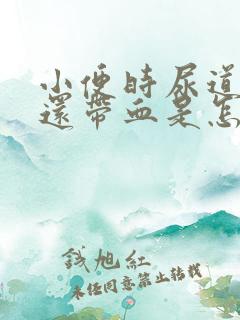 小便時尿道
還帶血是怎
錢旭紅
未经同意禁止转载